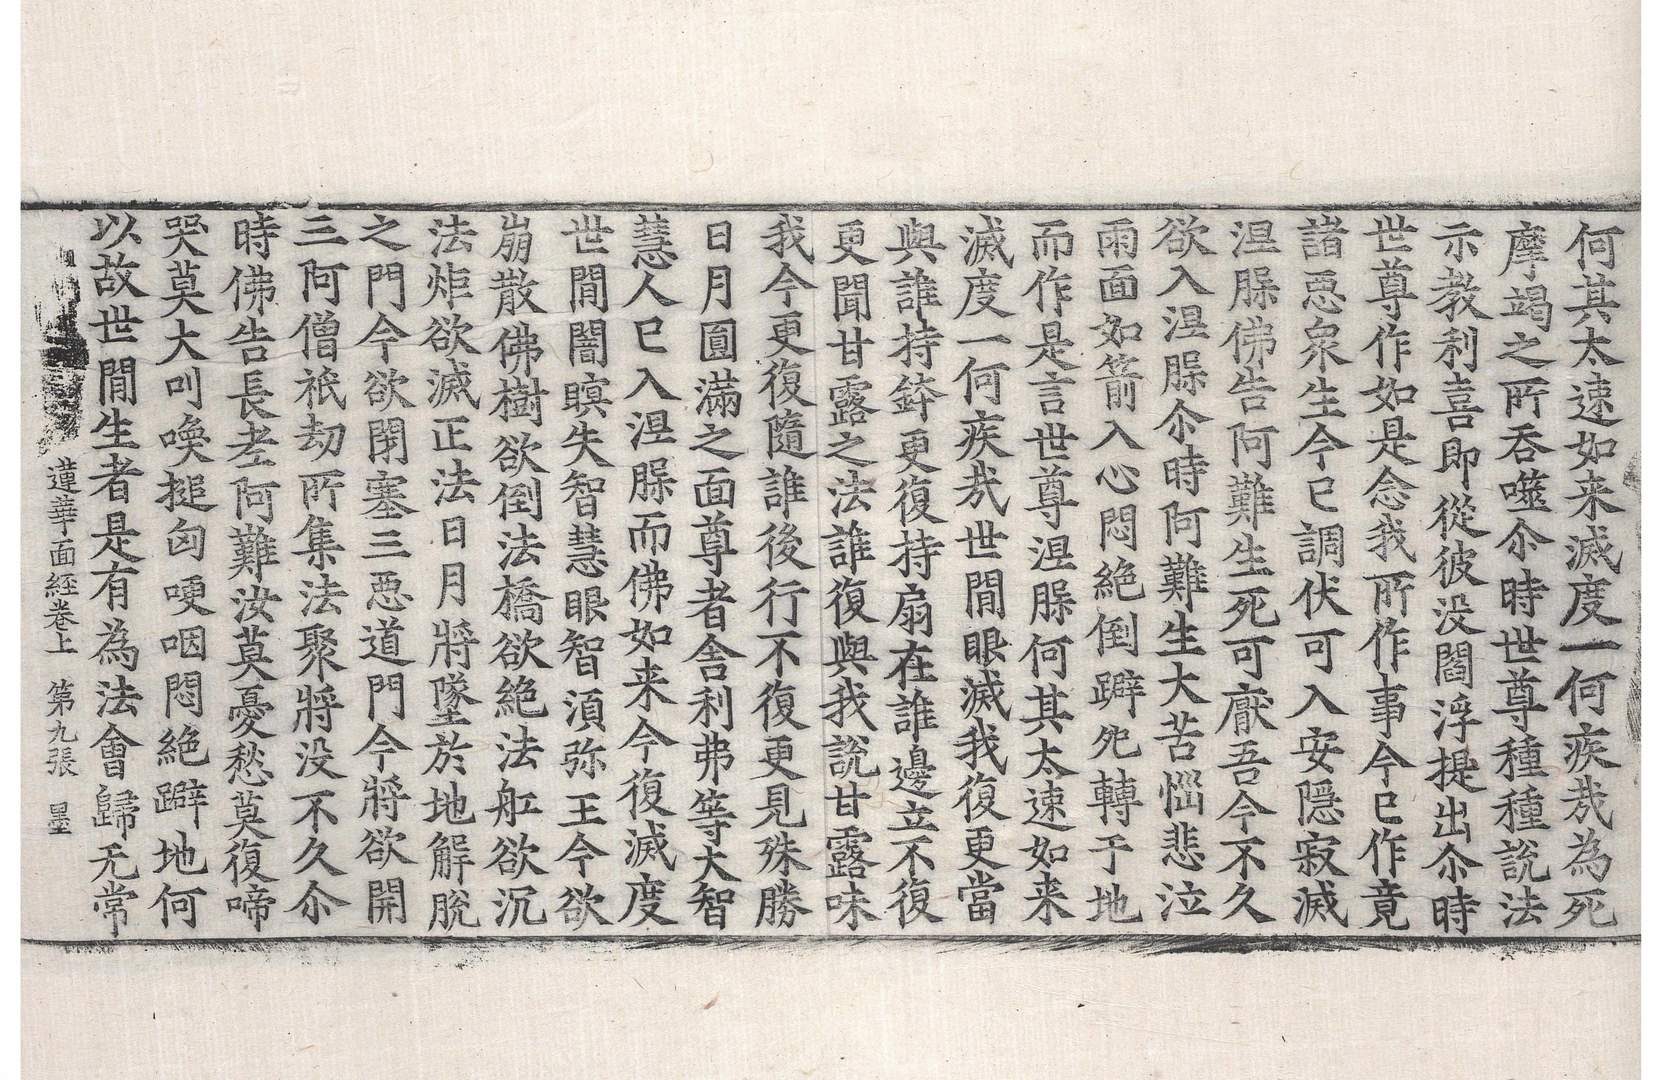 何其太速如来滅度一何疾㢤為死
摩竭之所呑噬尒時世尊種種說法
示教利喜即從彼没閻浮提出尒時
世尊作如是念我所作事今已作竟
諸惡衆生今已調伏可入安隱寂滅
涅槃佛告阿難生死可厭吾今不久
欲入涅槃尒時阿難生大苦惱悲泣
雨面如箭入心悶絶倒躃宛轉于地
而作是言世尊涅槃何其太速如来
滅度一何疾㢤世間眼滅我復更當
與誰持鉢更復持扇在誰邊立不復
更聞甘露之法誰復與我說甘露味
我今更復隨誰後行不復更見殊勝
日月圎滿之面尊者舎利弗等大智
慧人已入涅槃而佛如来今復滅度
世間闇瞑失智慧眼智湏弥王今欲
崩散佛樹欲倒法橋欲絶法舡欲沉
法炬欲滅正法日月將墜於地解脫
之門今欲閉塞三惡道門今將欲開
三阿僧祇劫所集法聚將没不久尒
時佛告長老阿難汝莫憂愁莫復啼
哭莫大叫喚搥匈哽咽悶絶躃地何
以故世間生者是有為法會歸无常
蓮華面経卷上　第九張　墨